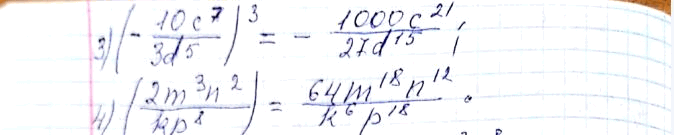 3) (- 10c⁷ / 3d⁵)³ = - 1000c²¹ / 27d¹⁵ ;
4) (2m³n² / kp⁸) = 64m¹⁸n¹² / k⁶p¹⁸ .